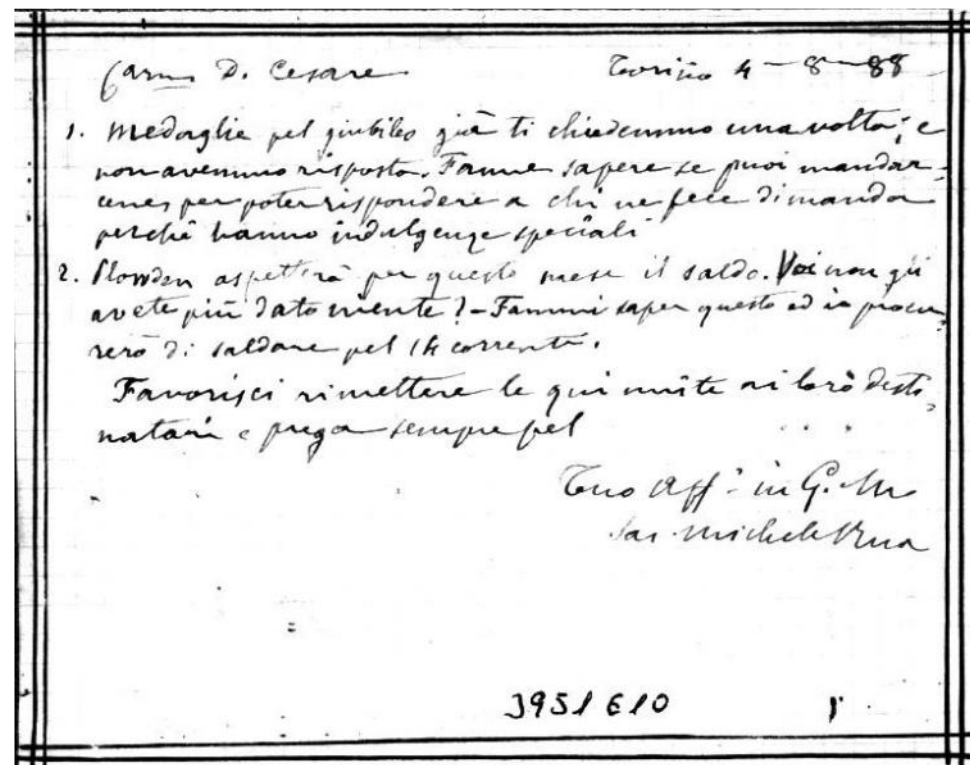 Carmo D. Cesare Torino 4-8-88
1. Medaglie pel giubileo già ti chiedemmo una volta; e
non avemmo risposta. Fanne sapere se puoi mandar-
cene, per poter rispondere a chi ne fece dimanda
perchè hanno indulgenze speciali
2. Plowden aspetterà per questo mese il saldo. Voi non gli
avete più dato niente? - Fammi saper questo ed io procu-
rerò di saldare pel 14 corrente.
Favorisci rimettere le qui unite ai loro desti-
natari e prega sempre pel
Tuo aff. in G. M.
Sac. Michele Rua
3951 E10